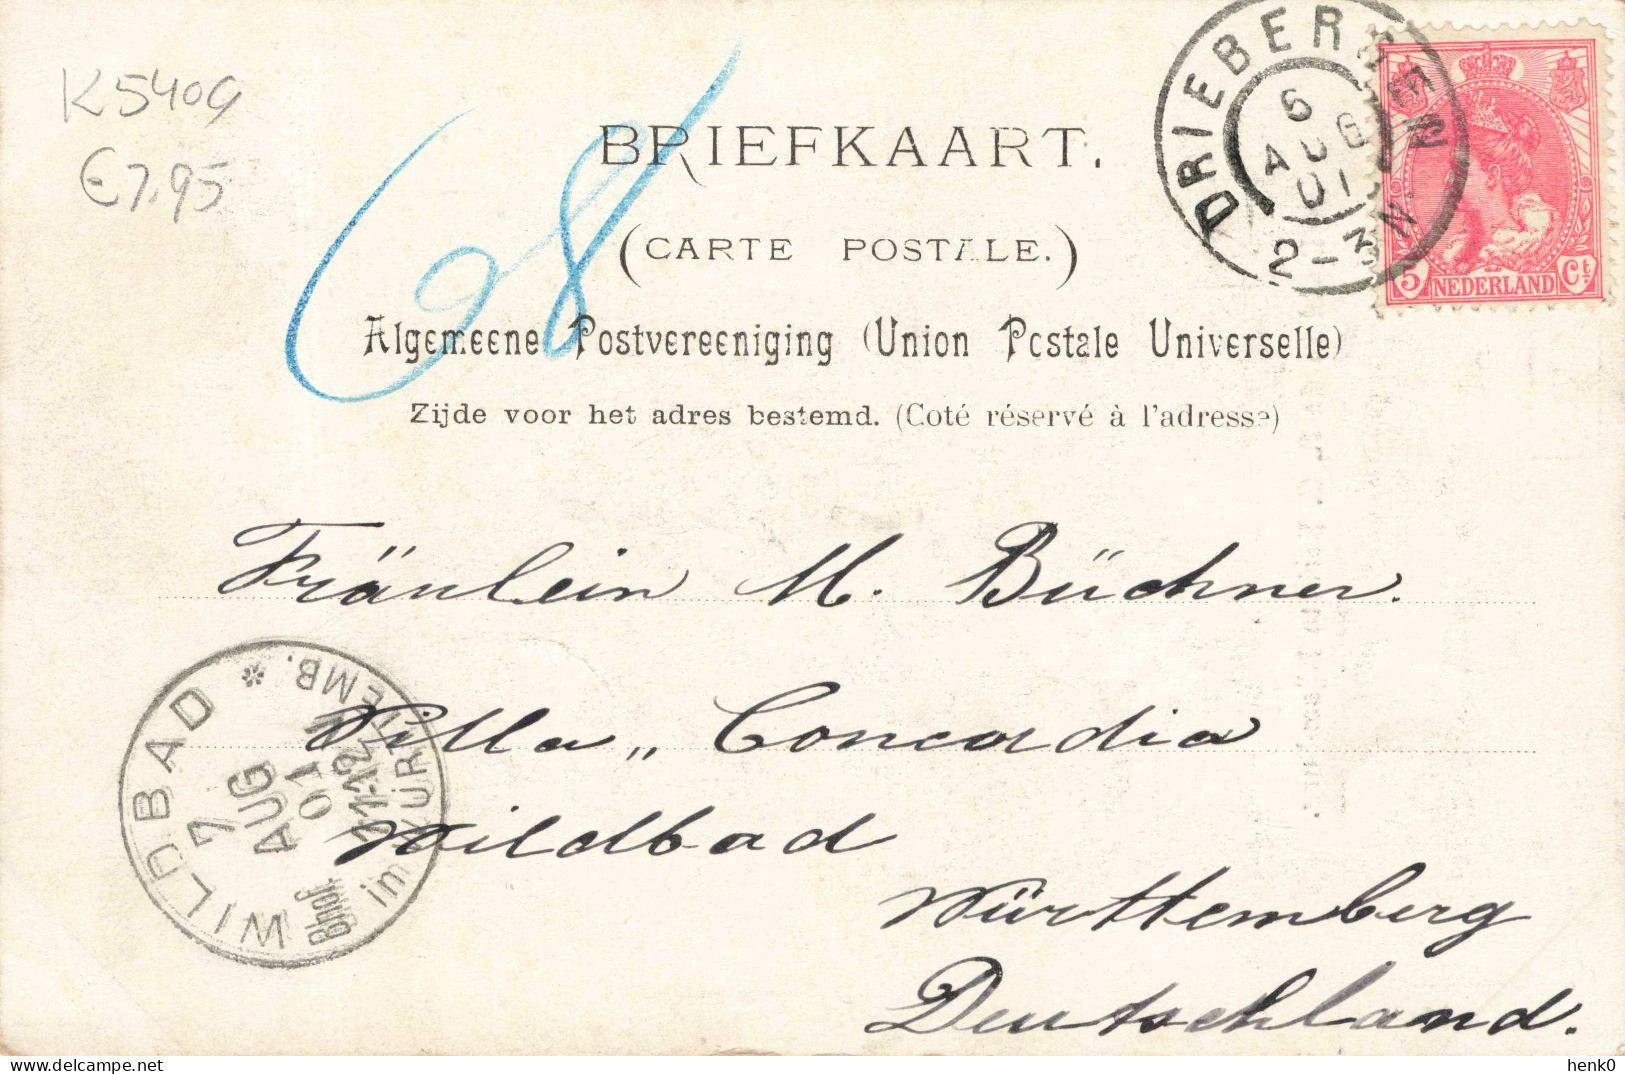 K5409
€7,95
68
BRIEFKAART.
(CARTE POSTALE.)
Algemeene Postvereeniging (Union Postale Universelle)
Zijde voor het adres bestemd. (Coté réservé à l'adresse)
DRIEBERGEN
6
AUG
01
2-3N
5 NEDERLAND Ct.
Fräulein M. Büchner.
Villa „ Concordia
Wildbad
Württemberg
Deutschland.
WILDBAD * in WÜRTTEMB.
7
AUG
01
11-12 V
Bhnf.
henk0